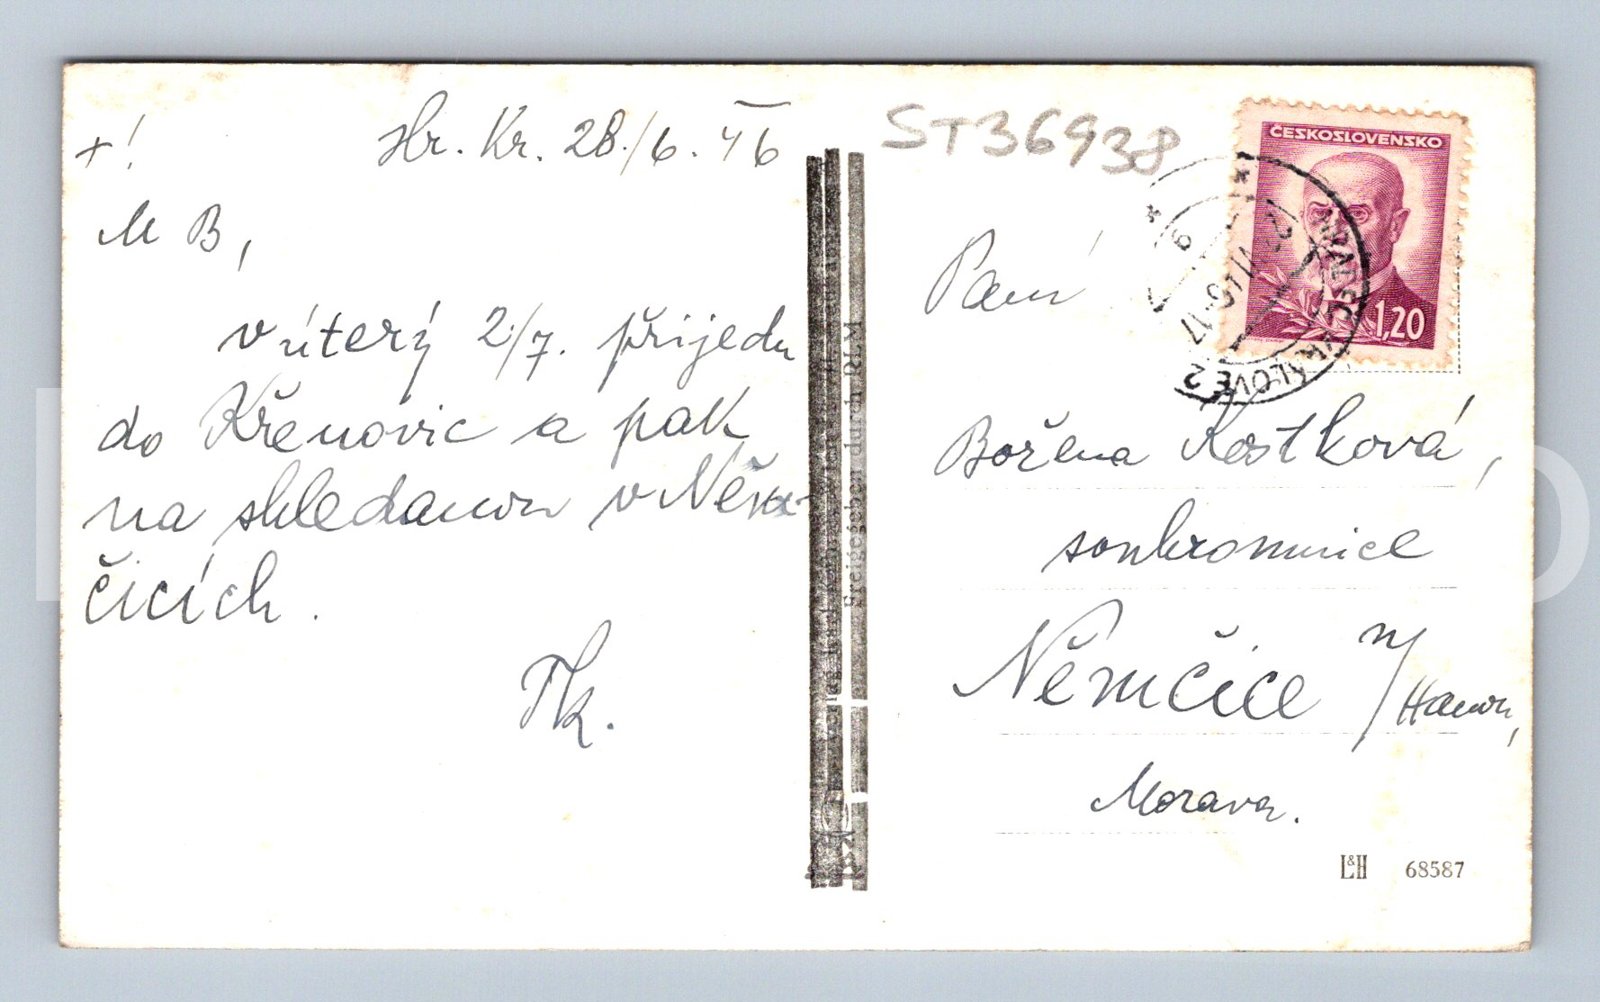 +! Hr. Kr. 28./6. 46
M B,
v úterý 2/7. přijedu
do Křenovic a pak
na shledanou v Něm-
čicích.
ST36938
ČESKOSLOVENSKO
1,20
HRADEC KRÁLOVÉ 2
Paní
Božena Kostková,
soukromnice
Němčice n/Hanou,
Morava.
freigegeben durch RLM
L&H 68587